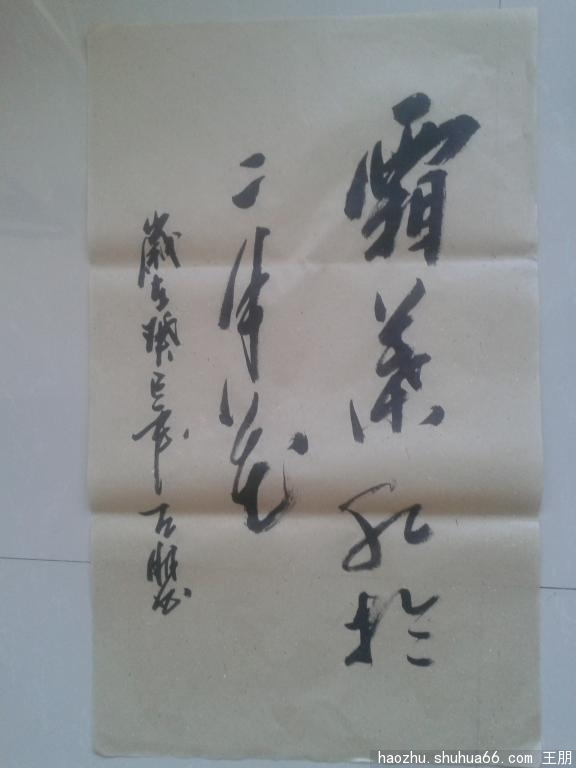 霜葉红於
二月花
歲在癸巳年 古朋书
haozhu.shuhua66.com 王朋